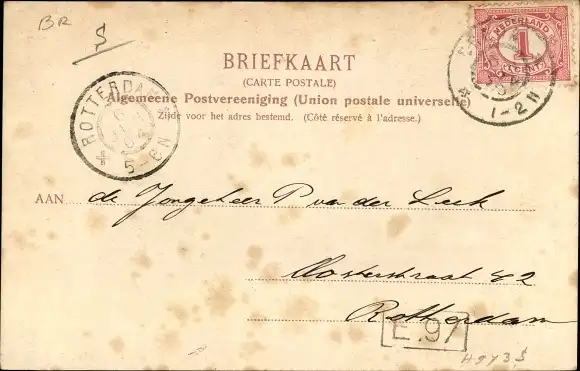 BR
$
NEDERLAND
1
CENT
1-2 N
BRIEFKAART
(CARTE POSTALE)
Algemeene Postvereeniging (Union postale universelle)
Zijde voor het adres bestemd. (Côté réservé à l'adresse.)
ROTTERDAM
5-6N
AAN de Jongeheer P van der Leek
Oosterstraat 82
Rotterdam
E.97
H973$